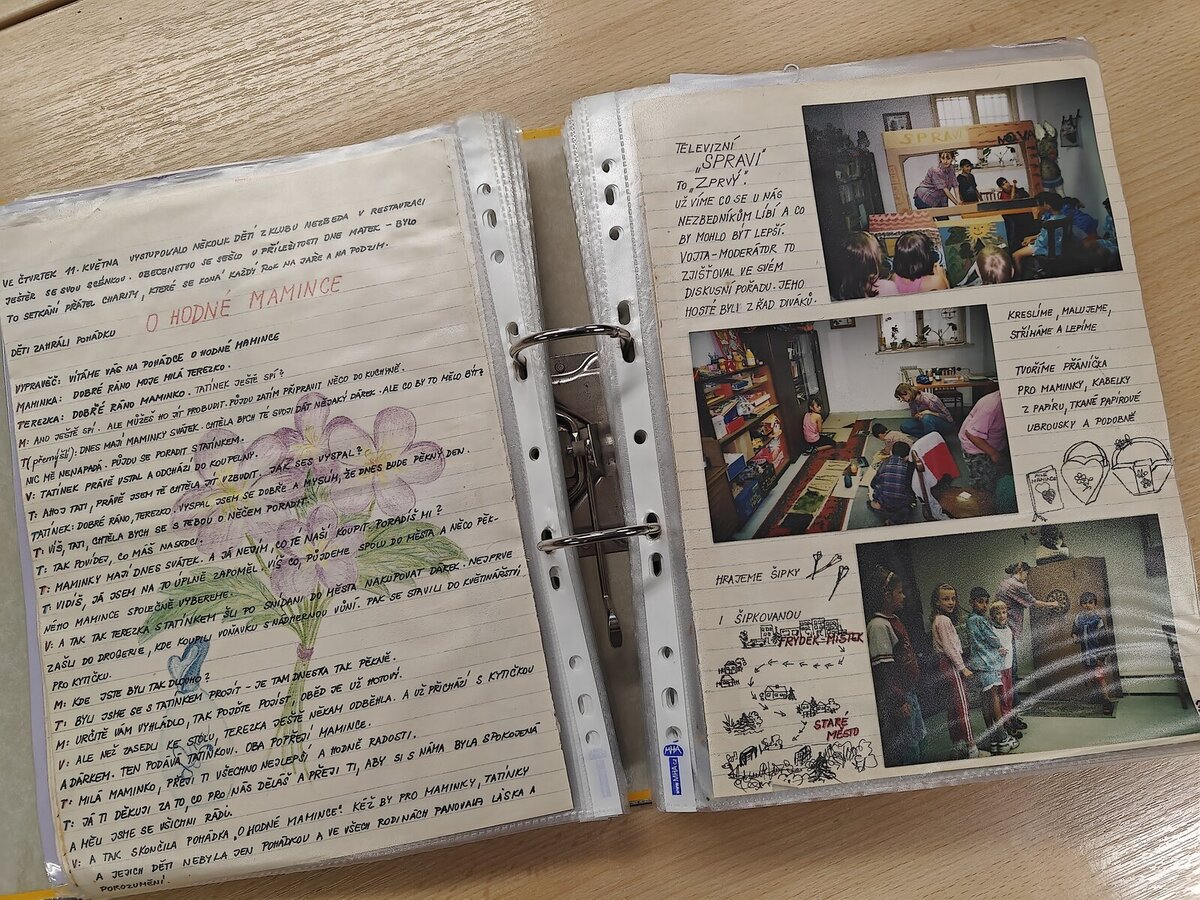 VE ČTVRTEK 11. KVĚTNA VYSTUPOVALO NĚKOLIK DĚTÍ Z KLUBU NEZBEDA V RESTAURACI
JEŠTĚR SE SVOU SCÉNKOU. OBECENSTVO SE SEŠLO U PŘÍLEŽITOSTI DNE MATEK - BYLO
TO SETKÁNÍ PŘÁTEL CHARITY, KTERÉ SE KONÁ KAŽDÝ ROK NA JAŘE A NA PODZIM.
O HODNÉ MAMINCE
DĚTI ZAHRÁLI POHÁDKU
VYPRAVĚČ: VÍTÁME VÁS NA POHÁDCE O HODNÉ MAMINCE
MAMINKA: DOBRÉ RÁNO MOJE MILÁ TEREZKO.
TEREZKA: DOBRÉ RÁNO MAMINKO. TATÍNEK JEŠTĚ SPÍ?
M: ANO JEŠTĚ SPÍ. ALE MŮŽEŠ HO JÍT PROBUDIT. PŮJDU ZATÍM PŘIPRAVIT NĚCO DO KUCHYNĚ.
T(přemýšlí): DNES MAJÍ MAMINKY SVÁTEK. CHTĚLA BYCH TÉ SVOJÍ DÁT NĚJAKÝ DÁREK. ALE CO BY TO MĚLO BÝT?
NIC MĚ NENAPADÁ. PŮJDU SE PORADIT S TATÍNKEM.
V: TATÍNEK PRÁVĚ VSTAL A ODCHÁZÍ DO KOUPELNY.
T: AHOJ TATI, PRÁVĚ JSEM TĚ CHTĚLA JÍT VZBUDIT. JAK SES VYSPAL?
TATÍNEK: DOBRÉ RÁNO, TEREZKO. VYSPAL JSEM SE DOBŘE A MYSLÍM, ŽE DNES BUDE PĚKNÝ DEN.
T: VÍŠ, TATI, CHTĚLA BYCH SE S TEBOU O NĚČEM PORADIT.
T: TAK POVÍDEJ, CO MÁŠ NA SRDCI.
T: MAMINKY MAJÍ DNES SVÁTEK. A JÁ NEVÍM, CO TÉ NAŠÍ KOUPIT. PORADÍŠ MI?
T: VIDÍŠ, JÁ JSEM NA TO ÚPLNĚ ZAPOMĚL. VÍŠ CO, PŮJDEME SPOLU DO MĚSTA A NĚCO PĚK-
NÉHO MAMINCE SPOLEČNĚ VYBEREME.
V: A TAK TAK TEREZKA S TATÍNKEM ŠLI PO SNÍDANI DO MĚSTA NAKUPOVAT DÁREK. NEJPRVE
ZAŠLI DO DROGERIE, KDE KOUPILI VOŇAVKU S NÁDHERNOU VŮNÍ. PAK SE STAVILI DO KVĚTINÁŘSTVÍ
PRO KYTIČKU.
M: KDE JSTE BYLI TAK DLOUHO?
T: BYLI JSME SE S TATÍNKEM PROJÍT - JE TAM DNESKA TAK PĚKNĚ.
M: URČITĚ VÁM VYHLÁDLO, TAK POJĎTE POJÍST, OBĚD JE UŽ HOTOVÝ.
V: ALE NEŽ ZASEDLI KE STOLU, TEREZKA JEŠTĚ NĚKAM ODBĚHLA. A UŽ PŘICHÁZÍ S KYTIČKOU
A DÁRKEM. TEN PODÁVÁ TATÍNKOVI. OBA POPŘEJÍ MAMINCE.
T: MILÁ MAMINKO, PŘEJI TI VŠECHNO NEJLEPŠÍ A HODNĚ RADOSTI.
T: JÁ TI DĚKUJI ZA TO, CO PRO NÁS DĚLÁŠ A PŘEJI TI, ABY SI S NÁMA BYLA SPOKOJENÁ
A MĚLI JSME SE VŠICHNI RÁDI.
V: A TAK SKONČILA POHÁDKA „O HODNÉ MAMINCE". KÉŽ BY PRO MAMINKY, TATÍNKY
A JEJICH DĚTI NEBYLA JEN POHÁDKOU A VE VŠECH RODINÁCH PANOVALA LÁSKA A
POROZUMĚNÍ.
TELEVIZNÍ
„SPRAVI"
TO „ZPRVÝ".
UŽ VÍME CO SE U NÁS
NEZBEDNÍKŮM LÍBÍ A CO
BY MOHLO BÝT LEPŠÍ.
VOJTA-MODERÁTOR TO
ZJIŠŤOVAL VE SVÉM
DISKUSNÍ POŘADU. JEHO
HOSTÉ BYLI Z ŘAD DIVÁKŮ.
SPRAVI NOVA
KRESLÍME, MALUJEME,
STŘÍHÁME A LEPÍME
TVOŘÍME PŘÁNÍČKA
PRO MAMINKY, KABELKY
Z PAPÍRU, TKANÉ PAPÍROVÉ
UBROUSKY A PODOBNĚ
HRAJEME ŠIPKY
I ŠIPKOVANOU
FRÝDEK-MÍSTEK
STARÉ
MĚSTO
www.MHA.cz